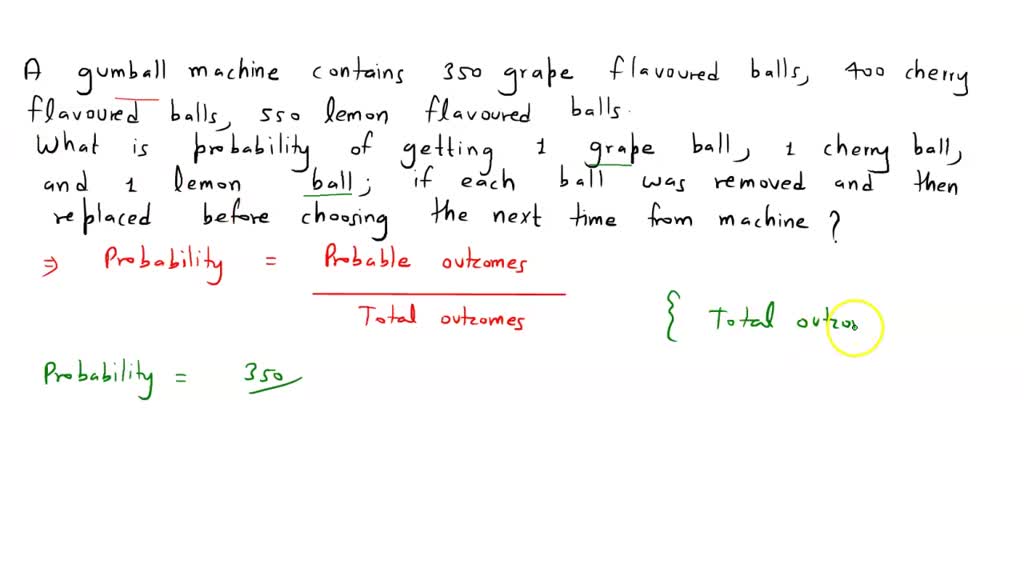 A gumball machine contains 350 grape flavoured balls, 400 cherry
flavoured balls, 550 lemon flavoured balls.
What is probability of getting 1 grape ball, 1 cherry ball,
and 1 lemon ball; if each ball was removed and then
replaced before choosing the next time from machine ?
⇒ Probability = Probable outcomes
Total outcomes
{ Total outco
Probability = 350